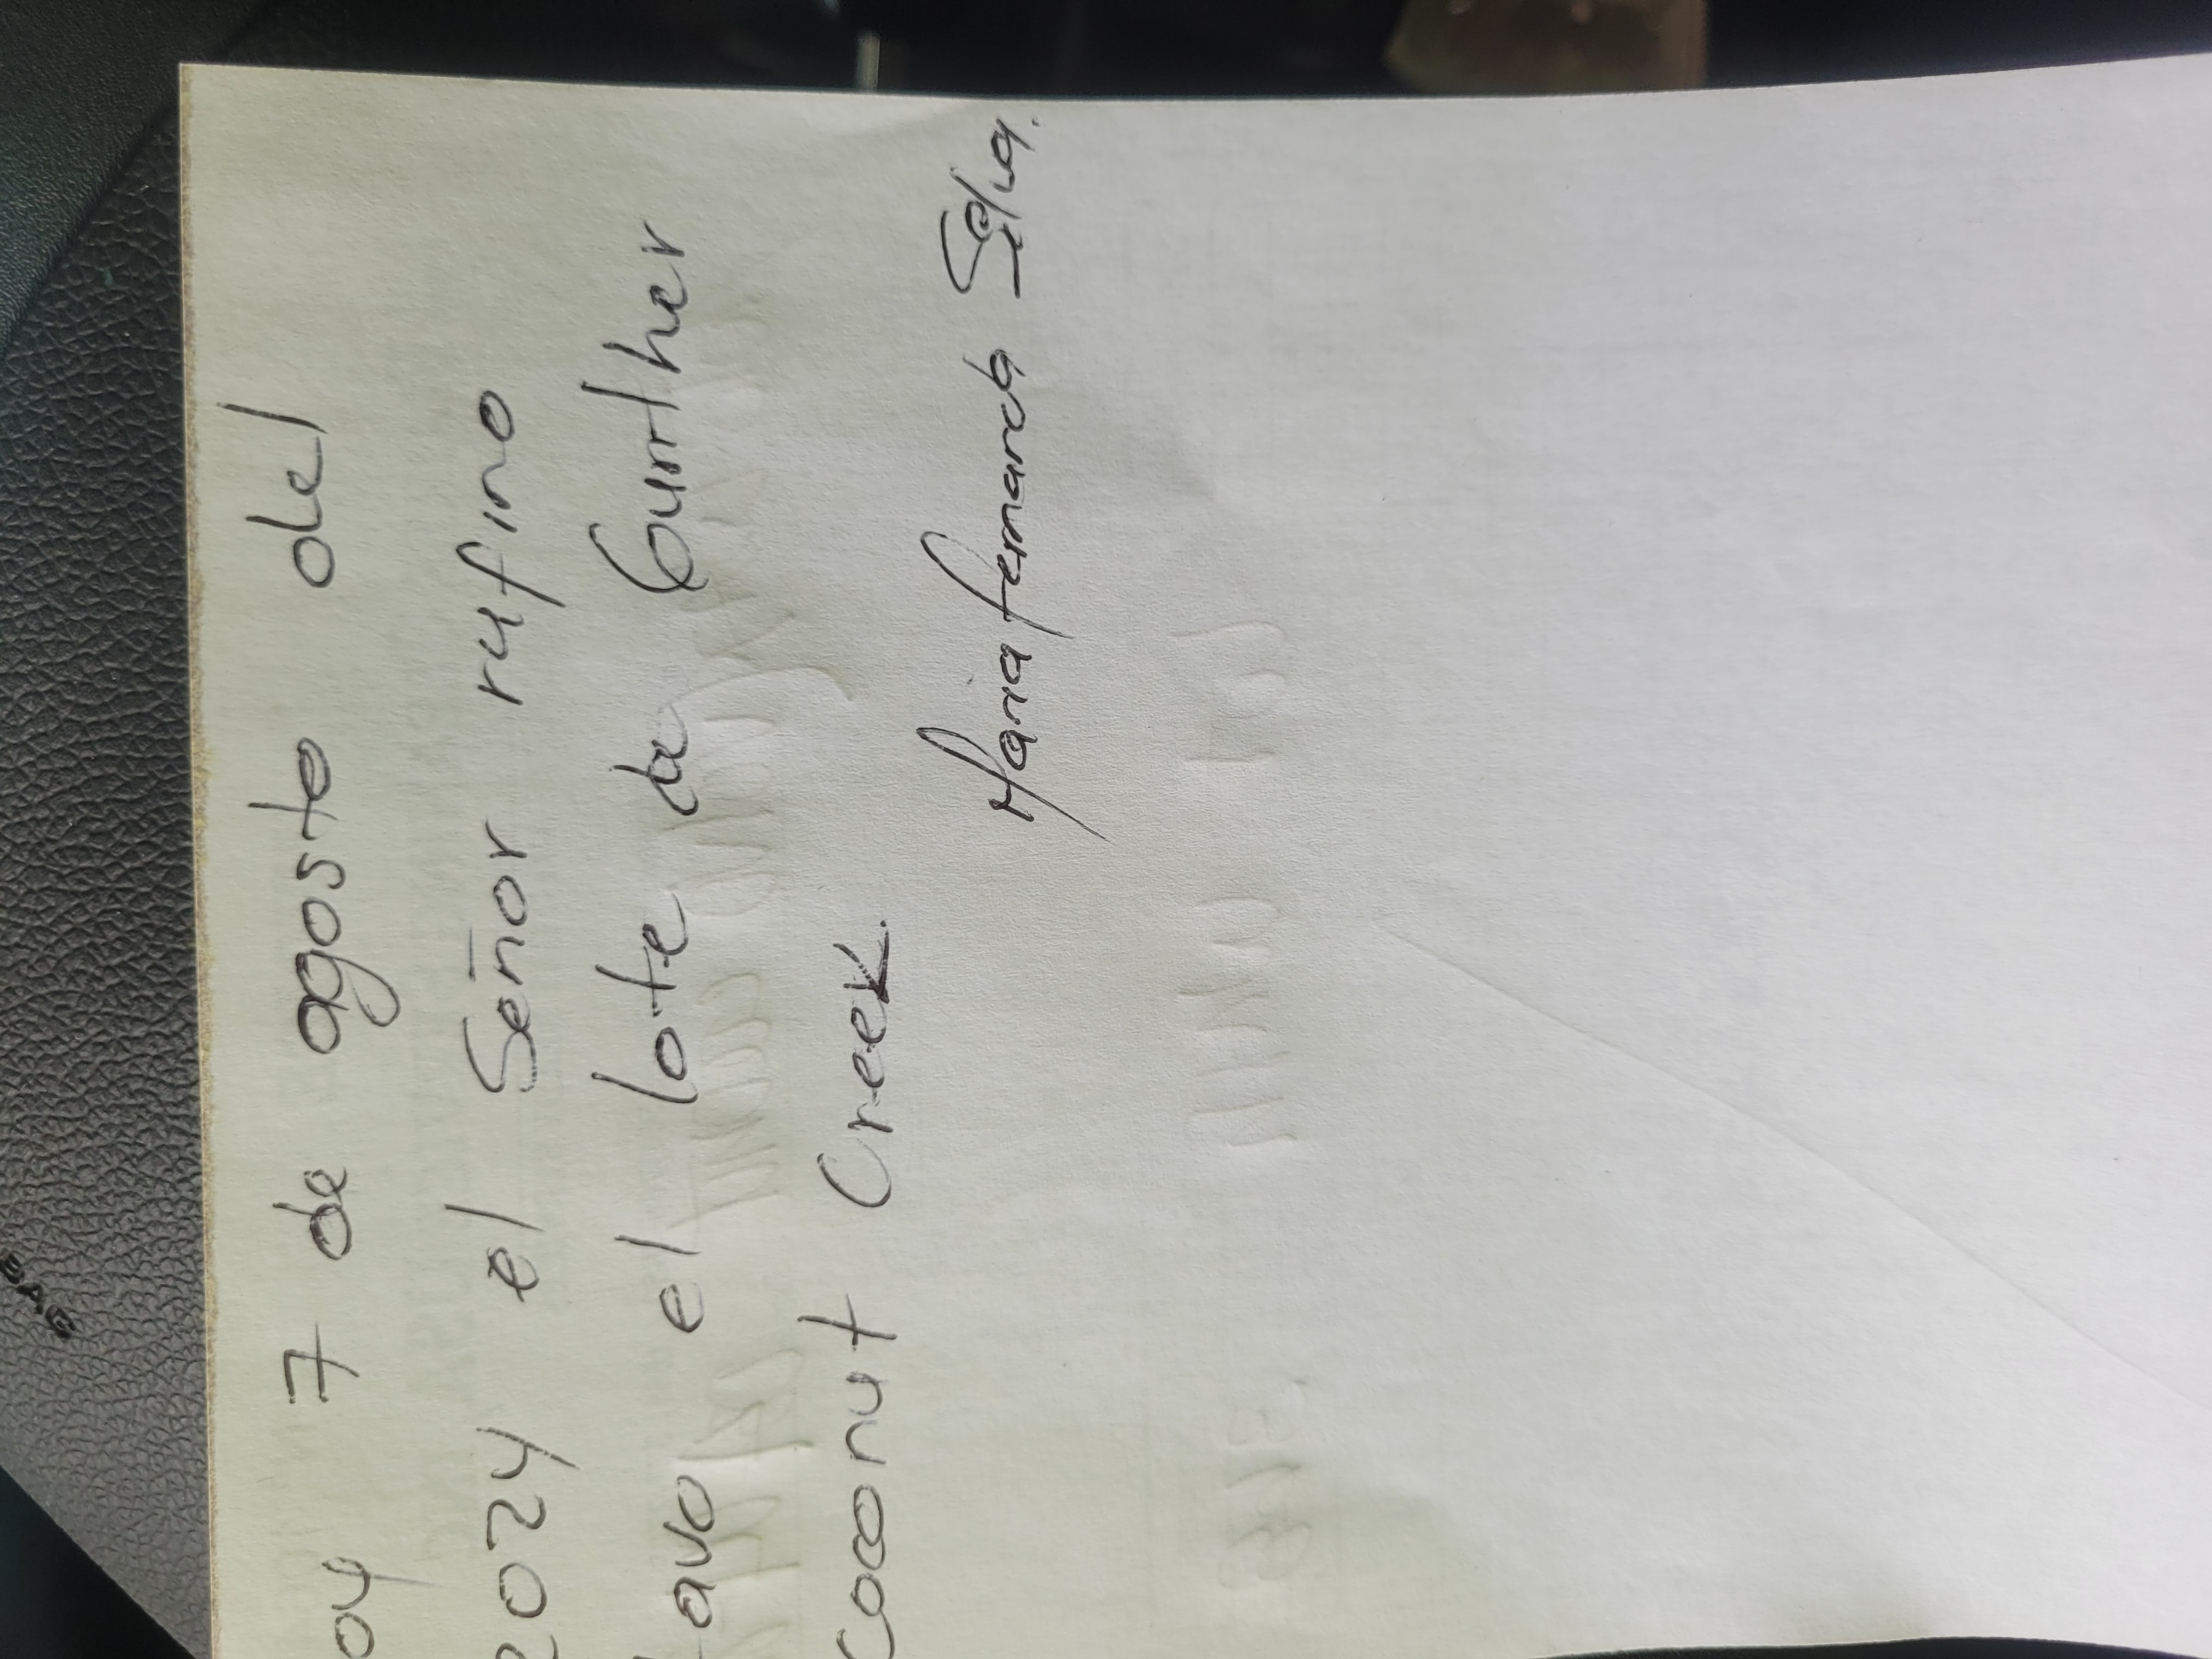 oy 7 de agosto del
2024 el Señor rufino
lavo el lote de Gunther
Coconut Creek.
Maria fernanda Silva.
BAG